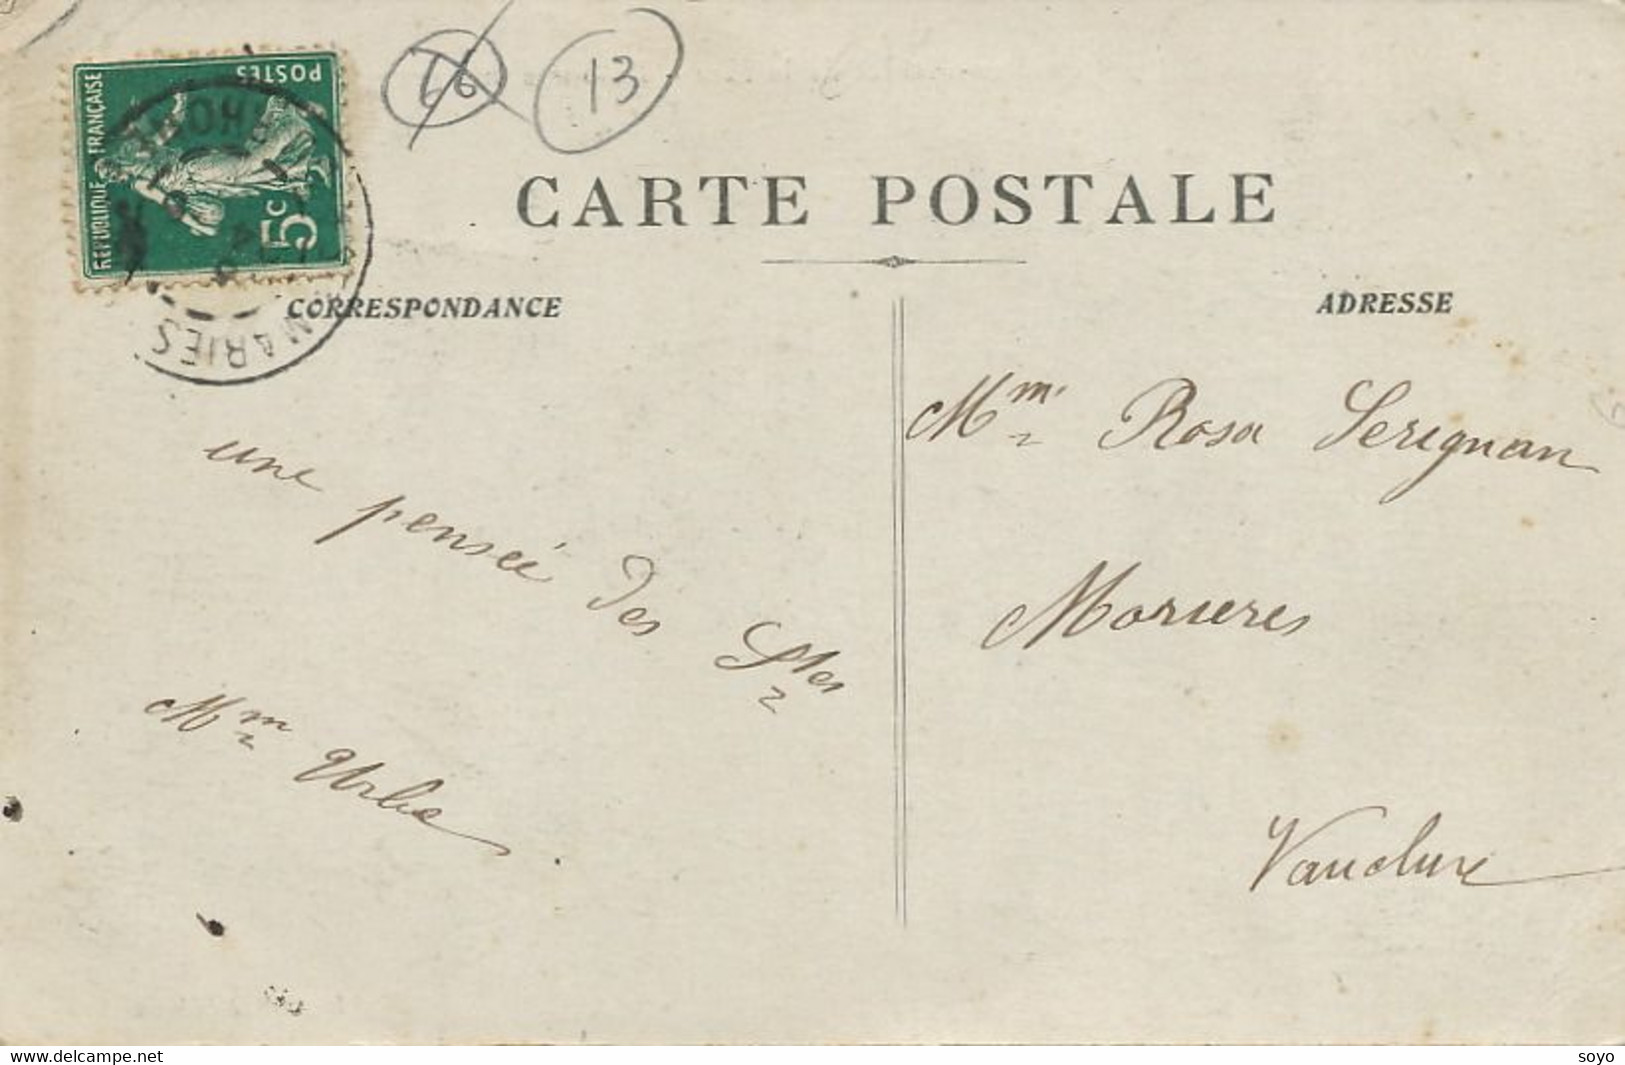 16 13
RÉPUBLIQUE FRANÇAISE
POSTES
5c
MARIES
CARTE POSTALE
CORRESPONDANCE
ADRESSE
une pensée des Stes
Mm Urbe
Mm Rosa Serignan
Morieres
Vaucluse
www.delcampe.net
soyo